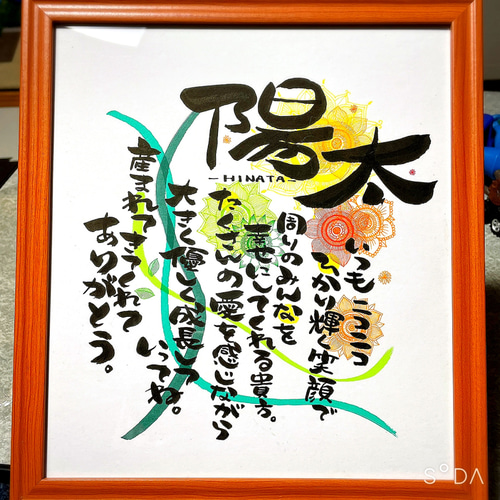 陽太
-HINATA-
いつもニコニコ
ひかり輝く笑顔で
周りのみんなを
幸せにしてくれる貴方。
たくさんの愛を感じながら
大きく優しく成長して
いってね。
産まれてきてくれて
ありがとう。
SODA